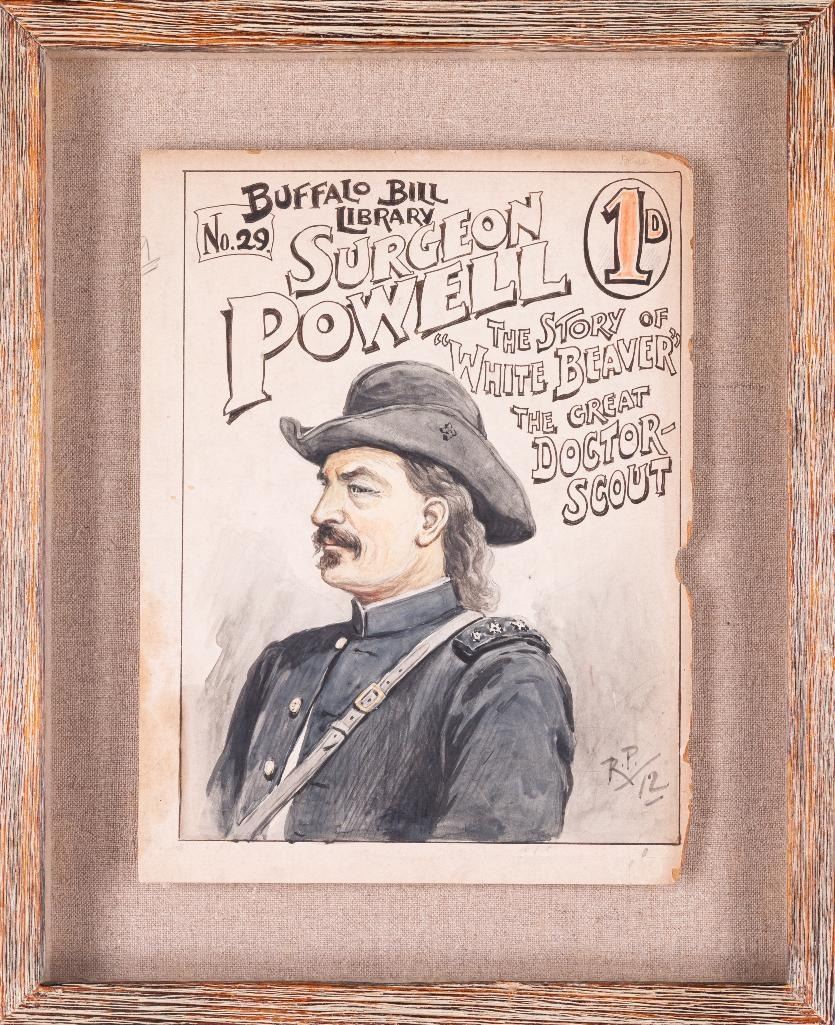 BUFFALO BILL
LIBRARY
No. 29.
SURGEON
POWELL
1D
THE STORY OF
"WHITE BEAVER"
THE GREAT
DOCTOR-
SCOUT
R.P. /12